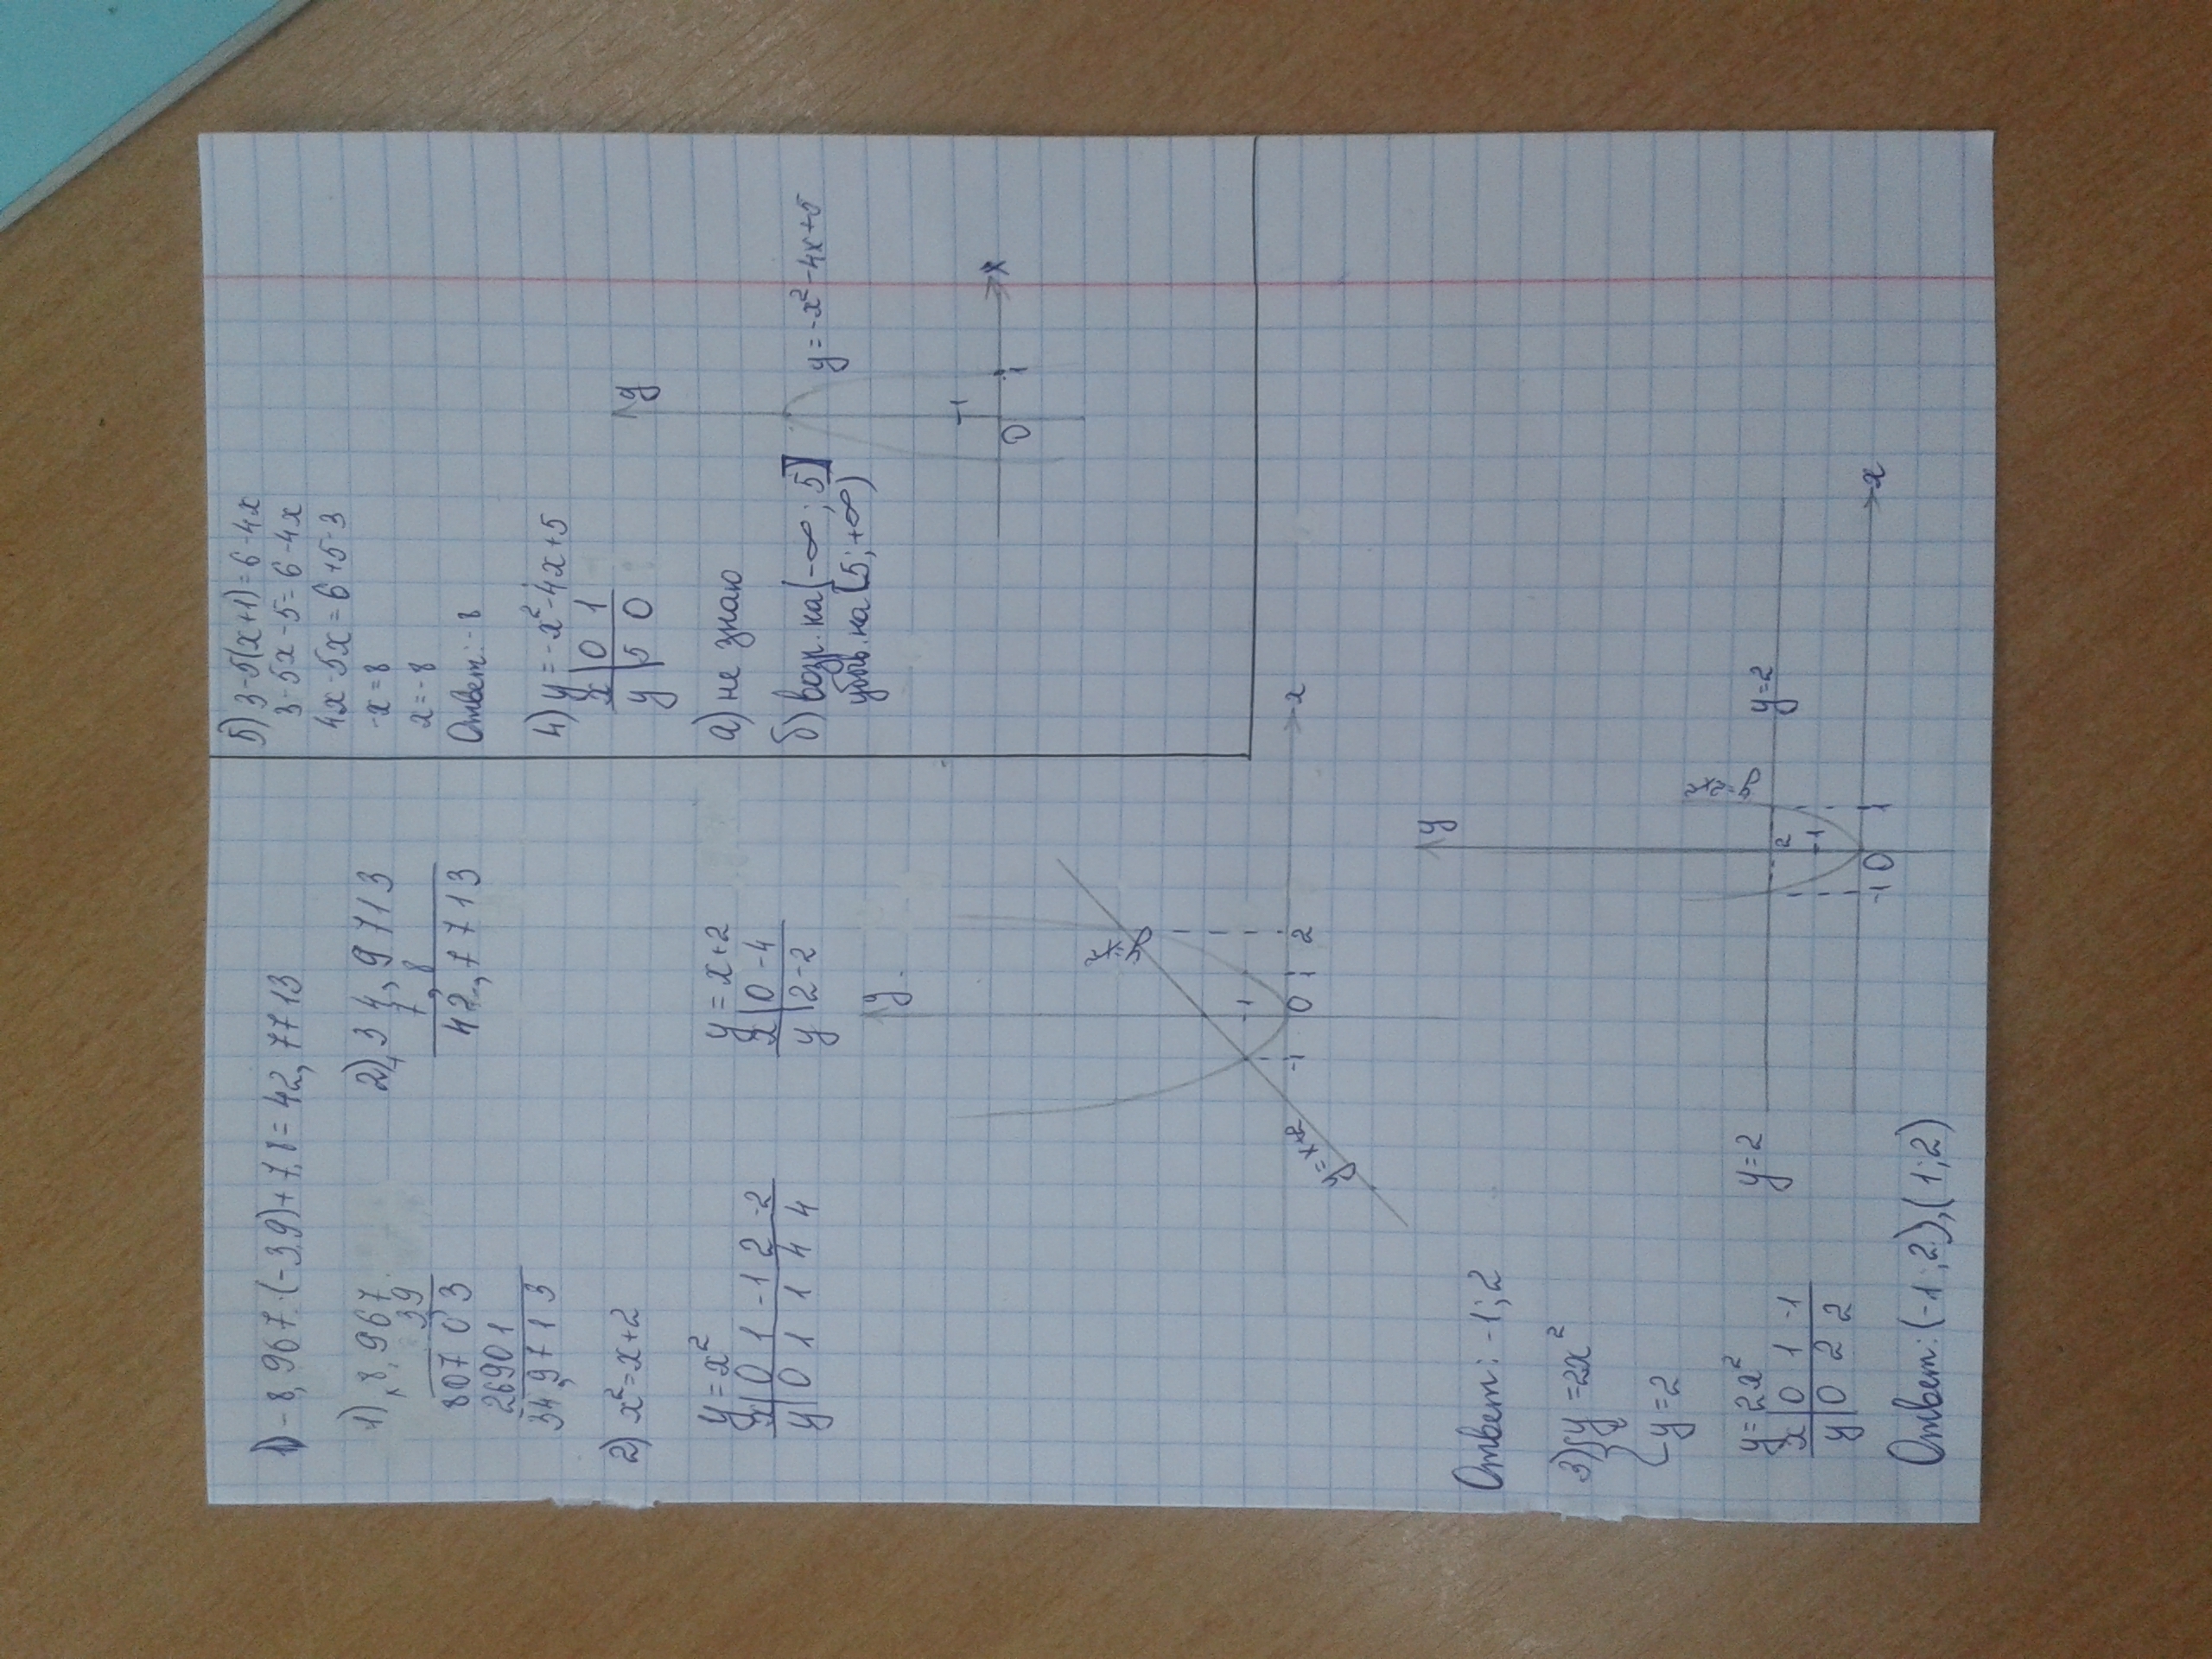 1) -8,967·(-3,9)+7,8=42,7713
1) × 8,967
39
80703
26901
34,9713
2) + 34,9713
7,8
42,7713
2) x²=x+2
y=x²
x 0 1 -1 2 -2
y 0 1 1 4 4
y=x+2
x 0 -4
y 2 -2
y
x
-1 0 1 2
1
y=x²
y=x+2
Ответ: -1; 2
3) { y=2x²
y=2
y=2x²
x 0 1 -1
y 0 2 2
y=2
y
x
y=2
y=2x²
2
1
-1 0 1
Ответ: (-1; 2), (1; 2)
5) 3-5(x+1)=6-4x
3-5x-5=6-4x
4x-5x=6+5-3
-x=8
x=-8
Ответ: -8
4) y=-x²-4x+5
x 0 1
y 5 0
а) не знаю
б) возр. на (-∞; 5]
убыв. на [5; +∞)
y
y=-x²-4x+5
1
0 1
x